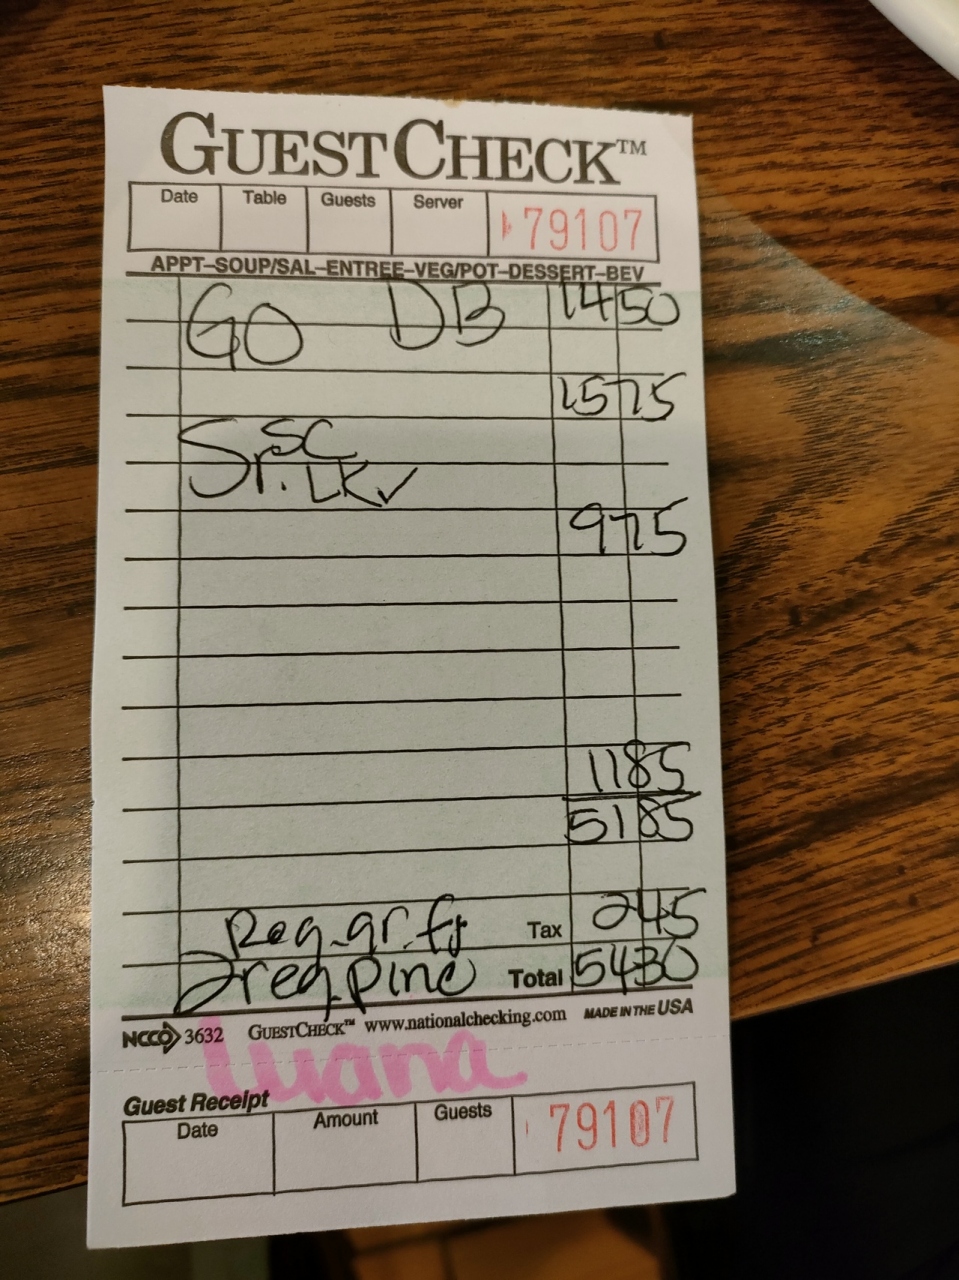 GUESTCHECK™
Date Table Guests Server 79107
APPT–SOUP/SAL–ENTREE–VEG/POT–DESSERT–BEV
GO DB 14 50
15 75
Sr. SC
LK✓
9 75
11 85
51 85
Reg. gr. Tax 2 45
2 reg. pine Total 54 30
NCCO 3632 GUESTCHECK™ www.nationalchecking.com MADE IN THE USA
Luana
Guest Receipt
Date Amount Guests 79107